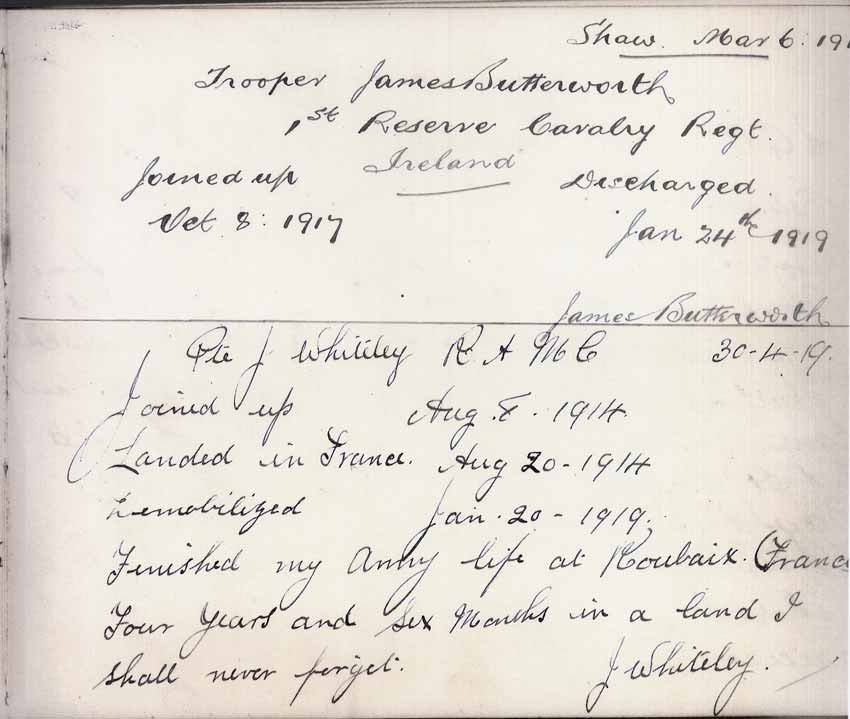 Shaw. Mar 6: 191
Trooper James Butterworth
1st Reserve Cavalry Regt.
Ireland
Joined up Discharged.
Oct 8: 1917 Jan 24th 1919
James Butterworth
Pte J Whiteley R A M C 30-4-19.
Joined up Aug. 8. 1914.
Landed in France. Aug 20-1914
Demobilized Jan. 20-1919.
Finished my Army life at Roubaix. (France
Four Years and Six Months in a land I
shall never forget.
J Whiteley.